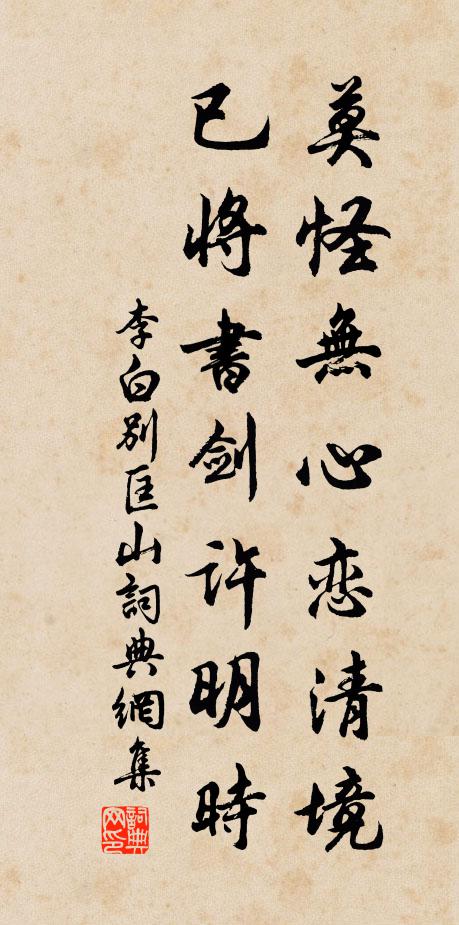 莫怪無心恋清境
已将書剑許明時
李白别匡山詞典網集
詞典网印